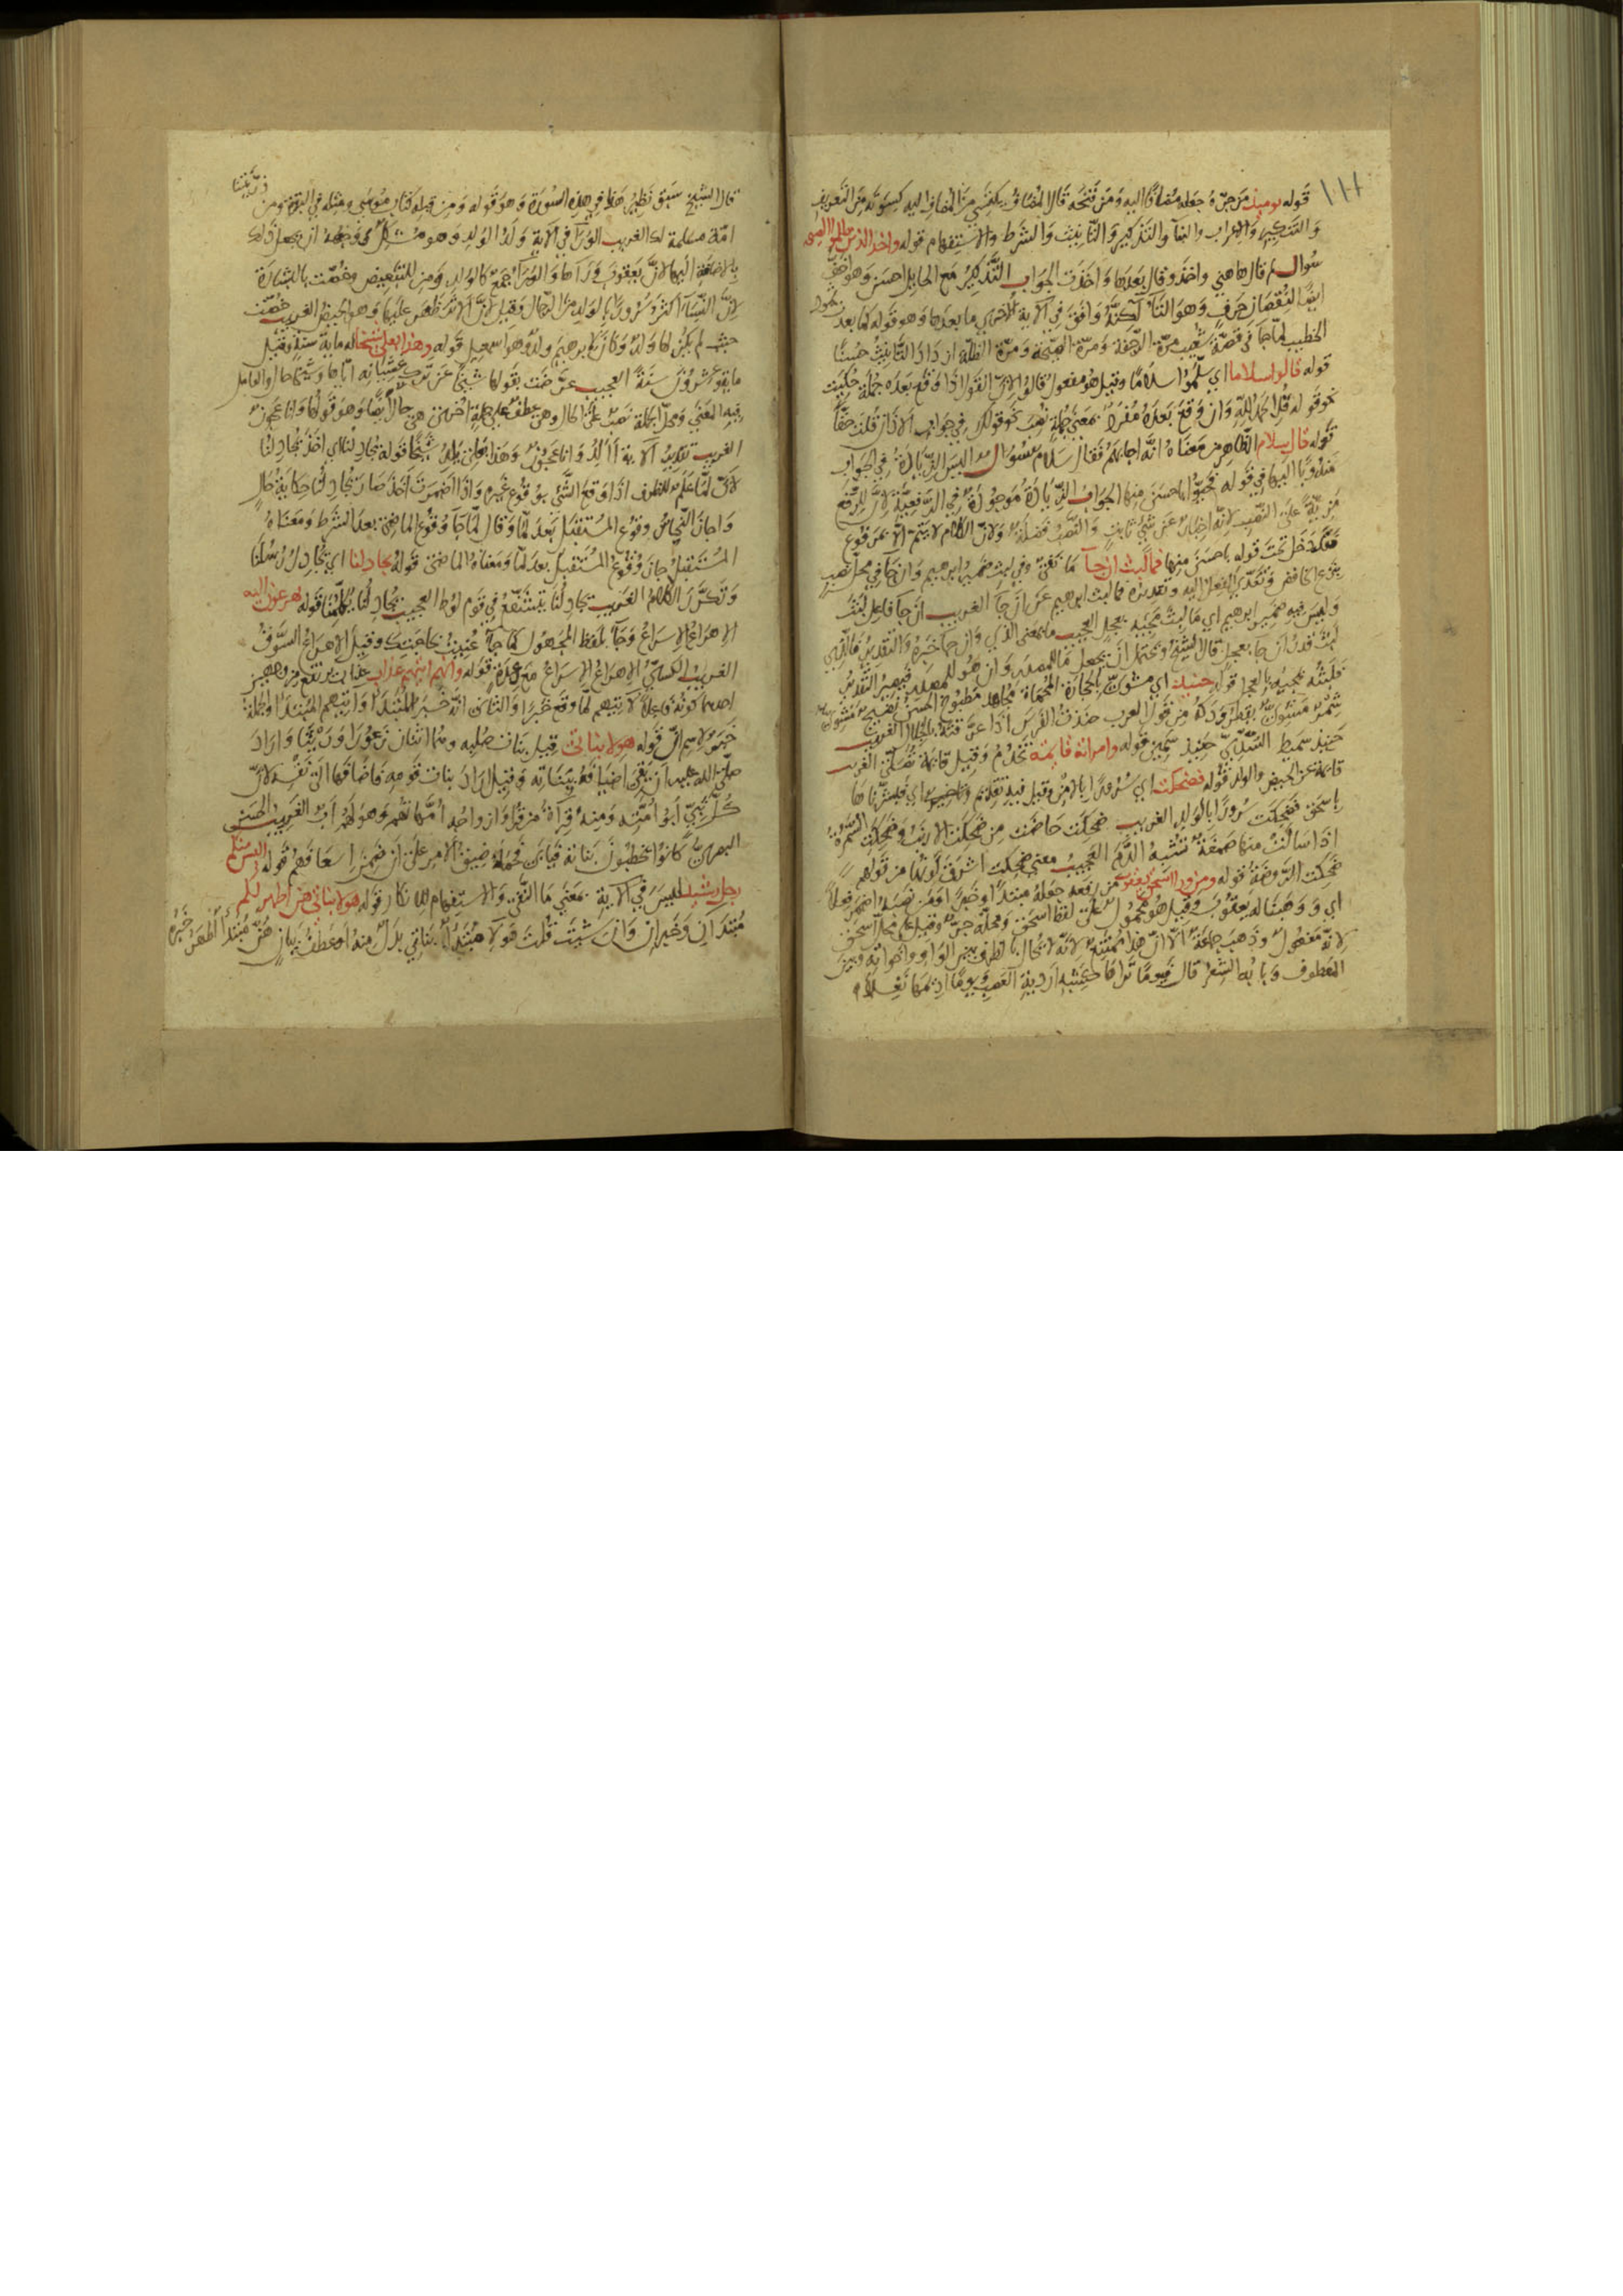 قوله يومئذ من جره جعله مضافا اليه ومن فتحه قال المضاف يكتسي من المضاف اليه كسوته من التعريف
والتنكير والاعراب والبنا والتذكير والتانيث والشرط والاستفهام قوله واخذ الذين ظلموا الصيحة
سوال لم قال هاهنى واخذ وقال بعدها واخذت الجواب التذكير مع الحايل احسن وهو اخف
ايضا لنقصان حرف وهو التا لكنه وافق في الاية الاخرى ما بعدها وهو قوله كما بعدت ثمود
الخطيب لما جا في قصة شعيب مرة الرجفة ومرة الصيحة ومرة الظلة ازداد التانيث حسنا
قوله قالوا سلاما اي سلموا سلاما وقيل هو مفعول قالوا لان القول اذا وقع بعده جملة حكيت
نحو قوله قل الحمد لله وان وقع بعده مفردا بمعنى جملة نصب نحو قولك في جواب الاذان قلت حقا
قوله قال سلام الظاهر من معناه انه اجابهم فقال سلام سوال اليس الزيادة في الجواب
مندوبا اليها في قوله فحيوا باحسن منها الجواب الزيادة موجودة في الرفعية لان للرفع
مزية على النصب لانه اخبار عن شي ثابت والنصب فضلة ولان الكلام لا يتم الا بمرفوع
فقد دخل تحت قوله باحسن منها فما لبث ان جا ما نفى وفي لبث ضمير ابرهيم وان جا في محل نصب
بنزع الخافض وتعدي الفعل اليه وتقديره فما لبث ابرهيم عن ان جا الغريب ان جا فاعل لبث
وليس فيه ضمير ابرهيم اي ما لبث مجيه بعجل العجيب ما بمعنى الذي وان جا خبره والتقدير فالذي
لبث قدر ان جا بعجل قال الشيخ ويحتمل ان يجعل ما للمصدر وان هو للمصدر فيصير التقدير
فلبثه مجيه بالعجل قوله حنيذ اي مشوي بالحجارة المحماة مجاهد مطبوخ الحسن نضيج مشوي
شمر مشوي يقطر ودكه من قول العرب حنذت الفرس اذا عرقته بالجلال الغريب
حنيذ سميط السدي حنيذ سمين قوله وامراته قايمة تخدم وقيل قايمة تصلي الغريب
قايمة عن الحيض والولد قوله فضحكت اي سرورا بالامن وقيل فيه تقديم وتاخير اي فبشرناها
باسحق فضحكت سرورا بالولد الغريب ضحكت حاضت من ضحكت الارنب وضحكت السمرة
اذا سالت منها صمغة تشبه الدم العجيب معنى ضحكت اشرق لونها من قولهم
ضحكت الروضة قوله ومن ورا اسحق يعقوب من رفعه جعله مبتدا وخبرا ومن نصبه اضمر فعلا
اي ووهبنا له يعقوب وقيل هو محمول على لفظ اسحق ومحله جر وقيل على محل اسحق
لانه مفعول وذهب جماعة الا ان هذا ممتنع لانه لا يحال بالظرف بين الواو واخواته وبين
المعطوف وبابه الشعر قال فيوما تراها كشبه اردية العصب ويوما اديمها نغلا
قال الشيخ سبق نظير هذا في هذه السورة وهو قوله ومن قبله كتاب موسى ومثله في البقرة ومن ذريتنا
امة مسلمة لك الغريب الورا في الاية ولد الولد وهو مشكل ووجهه ان يجعل ذلك
بالاضافة اليها لان يعقوب وراها والورا جمع كالوالد ومن للتبعيض وخصت بالبشارة
لان النسا اكثر سرورا بالولد من الرجال وقيل لان الاثر ظهر عليها وهو الحيض الغريب خصت
حيث لم يكن لها ولد وكان لابرهيم ولد وهو اسمعيل قوله وهذا بعلي شيخا له ماية سنة وقيل
ماية وعشرون سنة العجيب عرضت بقولها شيخا عن ترك غشيانه اياها وشيخا حال والعامل
فيه المعنى ومحل الجملة نصب على الحال وهي عطف على جملة اخرى هي حال ايضا وهو قولها وانا عجوز
الغريب تقدير الاية االد وانا عجوز وهذا بعلي يلد شيخا قوله يجادلنا اي اخذ يجادلنا
لان لما علم للظرف اذا وقع الشي بوقوع غيره واذا اضمرت اخذ صار يجادلنا حكاية حال
واجاز النحاس وقوع المستقبل بعد لما وقال لما جا وقوع الماضي بعد الشرط ومعناه
المستقبل جاز وقوع المستقبل بعد لما ومعناه الماضي قوله يجادلنا اي يجادل رسلنا
وتكرر الكلام الغريب يجادلنا يتشفع في قوم لوط العجيب يجادلنا يكلمنا قوله يهرعون اليه
الاهراع الاسراع وجا بلفظ المجهول كما جا عنيت بحاجتك وقيل الاهراع السوق
الغريب الكسائي الاهراع الاسراع مع رعدة قوله وانهم اتيهم عذاب عذاب يرتفع من وجهين
احدهما كونه فاعلا لاتيهم لما وقع خبرا والثاني انه خبر المبتدا واتيهم المبتدا والجملة
خبر لاسم ان قوله هولا بناتي قيل بنات صلبه وهما اثنتان زعورا وريثا واراد
صلى الله عليه ان يقي اضيافه ببناته وقيل اراد بنات قومه فاضافها الى نفسه لان
كل نبي ابو امته ومنه قراة من قرا وازواجه امهاتهم وهو لهم اب الغريب الحسن
البصري كانوا يخطبون بناته فيابى فحمله ضيق الامر على ان ضمن اسعافهم قوله اليس منكم
رجل رشيد ليس في الاية بمعنى ما النفي والاستفهام للانكار قوله هولا بناتي هن اطهر لكم
مبتدان وخبران وان شيت قلت هولا مبتدا بناتي بدل منه او عطف بيان هن مبتدا اطهر خبره